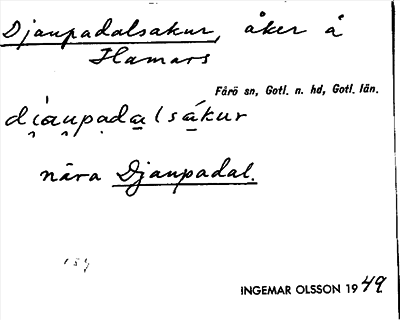 Djaupadalsakur, åker å
Hamars
Fårö sn, Gotl. n. hd, Gotl. län.
di̯au̯padalsákur
nära Djaupadal.
INGEMAR OLSSON 1949